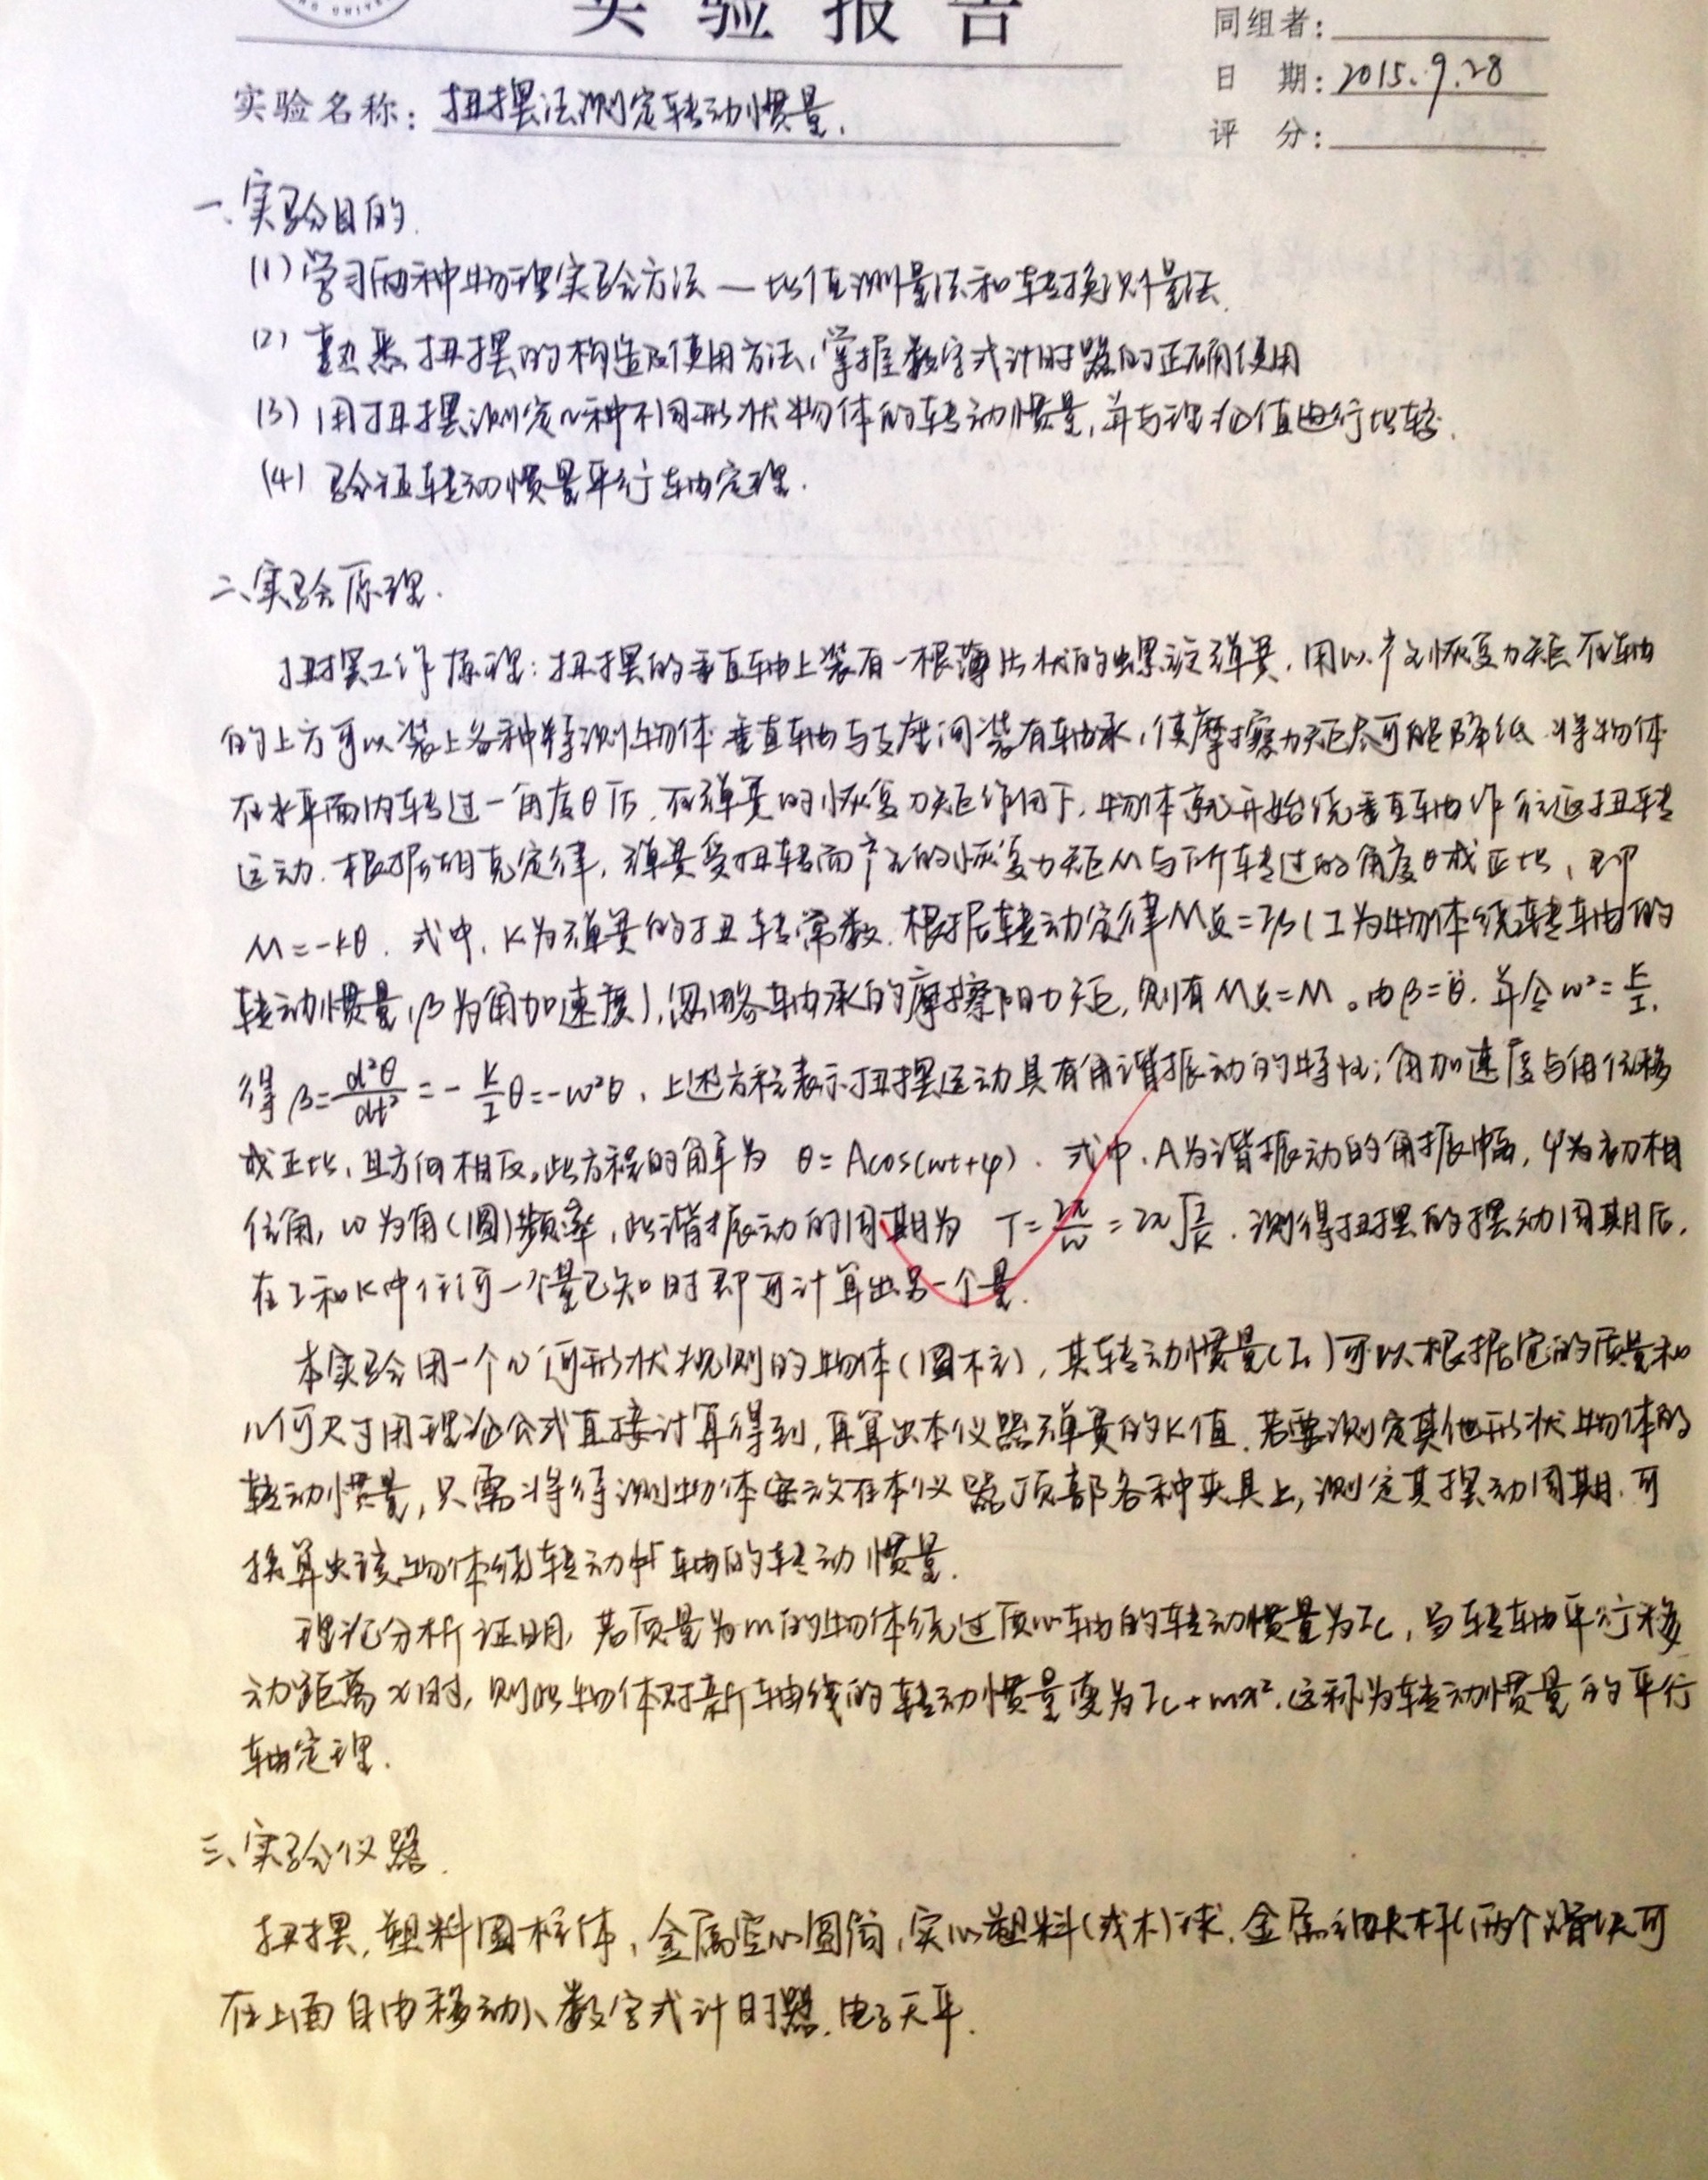 实验报告
同组者:
日 期: 2015.9.28
实验名称: 扭摆法测定转动惯量.
评 分:
一、实验目的.
(1) 学习两种物理实验方法—比值测量法和转换测量法.
(2) 熟悉扭摆的构造及使用方法,掌握数字式计时器的正确使用
(3) 用扭摆测定几种不同形状物体的转动惯量,并与理论值进行比较.
(4) 验证转动惯量平行轴定理.
二、实验原理.
扭摆工作原理:扭摆的垂直轴上装有一根薄片状的螺旋弹簧,用以产生恢复力矩在轴
的上方可以装上各种待测物体 垂直轴与支座间装有轴承,使摩擦力矩尽可能降低 将物体
在水平面内转过一角度θ后,在弹簧的恢复力矩作用下,物体就开始绕垂直轴作往返扭转
运动.根据胡克定律,弹簧受扭转而产生的恢复力矩M与所转过的角度θ成正比,即
M=-kθ. 式中,K为弹簧的扭转常数.根据转动定律M总=Iβ(I为物体绕转轴的
转动惯量,β为角加速度),忽略轴承的摩擦阻力矩,则有M总=M。由β=θ̈.并令ω²=K/I,
得 β=d²θ/dt²=-K/Iθ=-ω²θ,上述方程表示扭摆运动具有角谐振动的特性;角加速度与角位移
成正比,且方向相反。此方程的解为 θ=Acos(ωt+φ). 式中,A为谐振动的角振幅,φ为初相
位角,ω为角(圆)频率,此谐振动的周期为 T=2π/ω=2π√I/K.测得扭摆的摆动周期后,
在I和K中任何一个量已知时即可计算出另一个量.
本实验用一个几何形状规则的物体(圆柱),其转动惯量(I₁)可以根据它的质量和
几何尺寸用理论公式直接计算得到,再算出本仪器弹簧的K值.若要测定其他形状物体的
转动惯量,只需将待测物体安放在本仪器顶部各种夹具上,测定其摆动周期.可
换算出该物体绕转动轴的转动惯量.
理论分析证明,若质量为m的物体绕过质心轴的转动惯量为Ic,当转轴平行移
动距离x时,则此物体对新轴线的转动惯量变为Ic+mx².这称为转动惯量的平行
轴定理.
三、实验仪器.
扭摆,塑料圆柱体,金属空心圆筒,实心塑料(或木)球,金属细长杆(两个滑块可
在上面自由移动)、数字式计时器.电子天平.